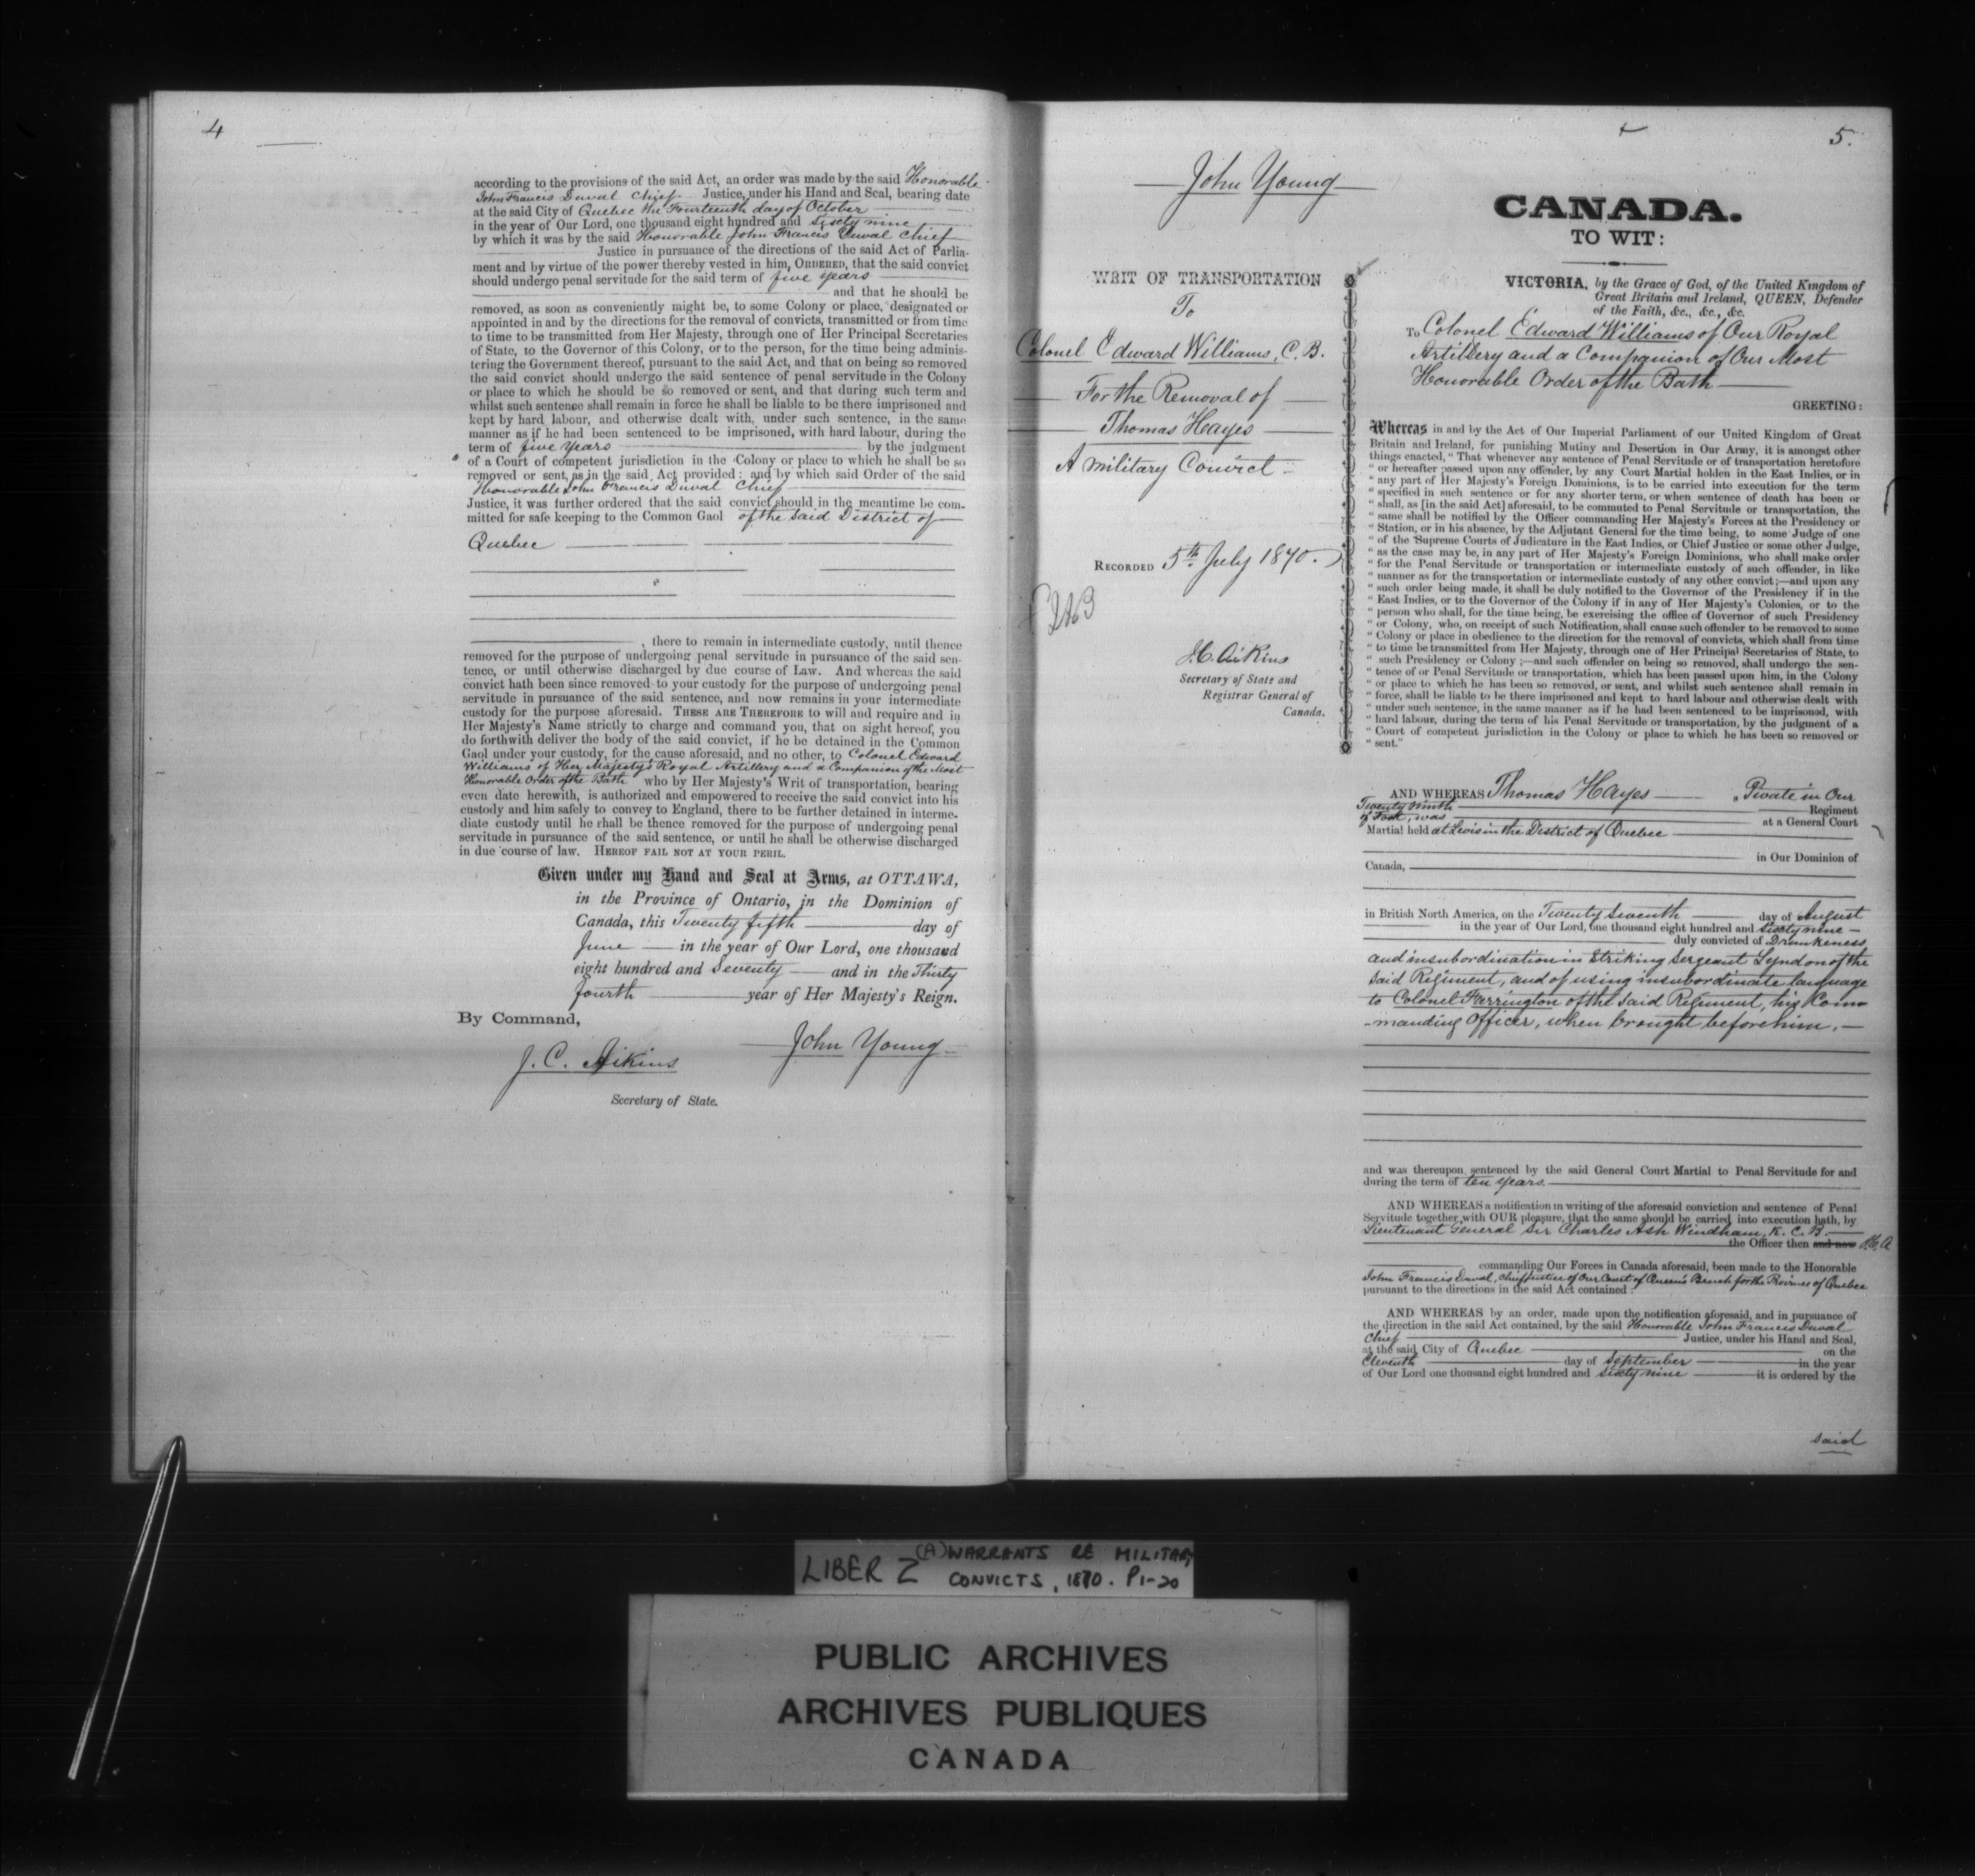 4
according to the provisions of the said Act, an order was made by the said Honorable
John Francis Duval Chief Justice, under his Hand and Seal, bearing date
at the said City of Quebec the Fourteenth day of October
in the year of Our Lord, one thousand eight hundred and Sixty nine
by which it was by the said Honorable John Francis Duval Chief
Justice in pursuance of the directions of the said Act of Parlia-
ment and by virtue of the power thereby vested in him, ORDERED, that the said convict
should undergo penal servitude for the said term of five years
and that he should be
removed, as soon as conveniently might be, to some Colony or place, designated or
appointed in and by the directions for the removal of convicts, transmitted or from time
to time to be transmitted from Her Majesty, through one of Her Principal Secretaries
of State, to the Governor of this Colony, or to the person, for the time being adminis-
tering the Government thereof, pursuant to the said Act, and that on being so removed
the said convict should undergo the said sentence of penal servitude in the Colony
or place to which he should be so removed or sent, and that during such term and
whilst such sentence shall remain in force he shall be liable to be there imprisoned and
kept by hard labour, and otherwise dealt with, under such sentence, in the same
manner as if he had been sentenced to be imprisoned, with hard labour, during the
term of five Years by the judgment
of a Court of competent jurisdiction in the Colony or place to which he shall be so
removed or sent, as in the said Act provided: and by which said Order of the said
Honorable John Francis Duval Chief
Justice, it was further ordered that the said convict should in the meantime be com-
mitted for safe keeping to the Common Gaol of the said District of
Quebec
, there to remain in intermediate custody, until thence
removed for the purpose of undergoing penal servitude in pursuance of the said sen-
tence, or until otherwise discharged by due course of Law. And whereas the said
convict hath been since removed to your custody for the purpose of undergoing penal
servitude in pursuance of the said sentence, and now remains in your intermediate
custody for the purpose aforesaid. THESE ARE THEREFORE to will and require and in
Her Majesty's Name strictly to charge and command you, that on sight hereof, you
do forthwith deliver the body of the said convict, if he be detained in the Common
Gaol under your custody, for the cause aforesaid, and no other, to Colonel Edward
Williams of Her Majesty's Royal Artillery and a Companion of the Most
Honorable Order of the Bath who by Her Majesty's Writ of transportation, bearing
even date herewith, is authorized and empowered to receive the said convict into his
custody and him safely to convey to England, there to be further detained in interme-
diate custody until he shall be thence removed for the purpose of undergoing penal
servitude in pursuance of the said sentence, or until he shall be otherwise discharged
in due course of law. HEREOF FAIL NOT AT YOUR PERIL.
Given under my Hand and Seal at Arms, at OTTAWA,
in the Province of Ontario, in the Dominion of
Canada, this Twenty fifth day of
June in the year of Our Lord, one thousand
eight hundred and Seventy and in the Thirty
fourth year of Her Majesty's Reign.
By Command,
John Young
J. C. Aikins
Secretary of State.
5.
John Young
WRIT OF TRANSPORTATION
To
Colonel Edward Williams, C. B.
For the Removal of
Thomas Hayes
A Military Convict
RECORDED 5th July 1870.
J. C. Aikins
Secretary of State and
Registrar General of
Canada.
CANADA.
TO WIT:
VICTORIA, by the Grace of God, of the United Kingdom of
Great Britain and Ireland, QUEEN, Defender
of the Faith, &c., &c., &c.
To Colonel Edward Williams of Our Royal
Artillery and a Companion of Our Most
Honorable Order of the Bath
GREETING:
Whereas in and by the Act of Our Imperial Parliament of our United Kingdom of Great
Britain and Ireland, for punishing Mutiny and Desertion in Our Army, it is amongst other
things enacted, "That whenever any sentence of Penal Servitude or of transportation heretofore
" or hereafter passed upon any offender, by any Court Martial holden in the East Indies, or in
" any part of Her Majesty's Foreign Dominions, is to be carried into execution for the term
" specified in such sentence or for any shorter term, or when sentence of death has been or
" shall, as [in the said Act] aforesaid, to be commuted to Penal Servitude or transportation, the
" same shall be notified by the Officer commanding Her Majesty's Forces at the Presidency or
" Station, or in his absence, by the Adjutant General for the time being, to some Judge of one
" of the Supreme Courts of Judicature in the East Indies, or Chief Justice or some other Judge,
" as the case may be, in any part of Her Majesty's Foreign Dominions, who shall make order
" for the Penal Servitude or transportation or intermediate custody of such offender, in like
" manner as for the transportation or intermediate custody of any other convict;—and upon any
" such order being made, it shall be duly notified to the Governor of the Presidency if in the
" East Indies, or to the Governor of the Colony if in any of Her Majesty's Colonies, or to the
" person who shall, for the time being, be exercising the office of Governor of such Presidency
" or Colony, who, on receipt of such Notification, shall cause such offender to be removed to some
" Colony or place in obedience to the direction for the removal of convicts, which shall from time
" to time be transmitted from Her Majesty, through one of Her Principal Secretaries of State, to
" such Presidency or Colony;—and such offender on being so removed, shall undergo the sen-
" tence of or Penal Servitude or transportation, which has been passed upon him, in the Colony
" or place to which he has been so removed, or sent, and whilst such sentence shall remain in
" force, shall be liable to be there imprisoned and kept to hard labour and otherwise dealt with
" under such sentence, in the same manner as if he had been sentenced to be imprisoned, with
" hard labour, during the term of his Penal Servitude or transportation, by the judgment of a
" Court of competent jurisdiction in the Colony or place to which he has been so removed or
" sent."
AND WHEREAS Thomas Hayes Private in Our
Twenty ninth Regiment
of Foot, was at a General Court
Martial held at Levis in the District of Quebec
in Our Dominion of
Canada,
in British North America, on the Twenty seventh day of August
in the year of Our Lord, one thousand eight hundred and Sixty nine
duly convicted of Drunkeness
and insubordination in Striking Sergeant Lyndon of the
said Regiment, and of using insubordinate language
to Colonel Farrington of the said Regiment, his Com-
-manding Officer, when brought before him.
and was thereupon sentenced by the said General Court Martial to Penal Servitude for and
during the term of ten years.
AND WHEREAS a notification in writing of the aforesaid conviction and sentence of Penal
Servitude together with OUR pleasure, that the same should be carried into execution hath, by
Lieutenant General Sir Charles Ash Windham, K. C. B.
the Officer then and now
commanding Our Forces in Canada aforesaid, been made to the Honorable
John Francis Duval, Chief Justice of Our Court of Queen's Bench for the Province of Quebec
pursuant to the directions in the said Act contained:
AND WHEREAS by an order, made upon the notification aforesaid, and in pursuance of
the direction in the said Act contained, by the said Honorable John Francis Duval
Chief Justice, under his Hand and Seal,
at the said City of Quebec on the
Eleventh day of September in the year
of Our Lord one thousand eight hundred and sixty nine it is ordered by the
said
LIBER Z (A) WARRANTS RE MILITARY
CONVICTS, 1870. P1-20
PUBLIC ARCHIVES
ARCHIVES PUBLIQUES
CANADA